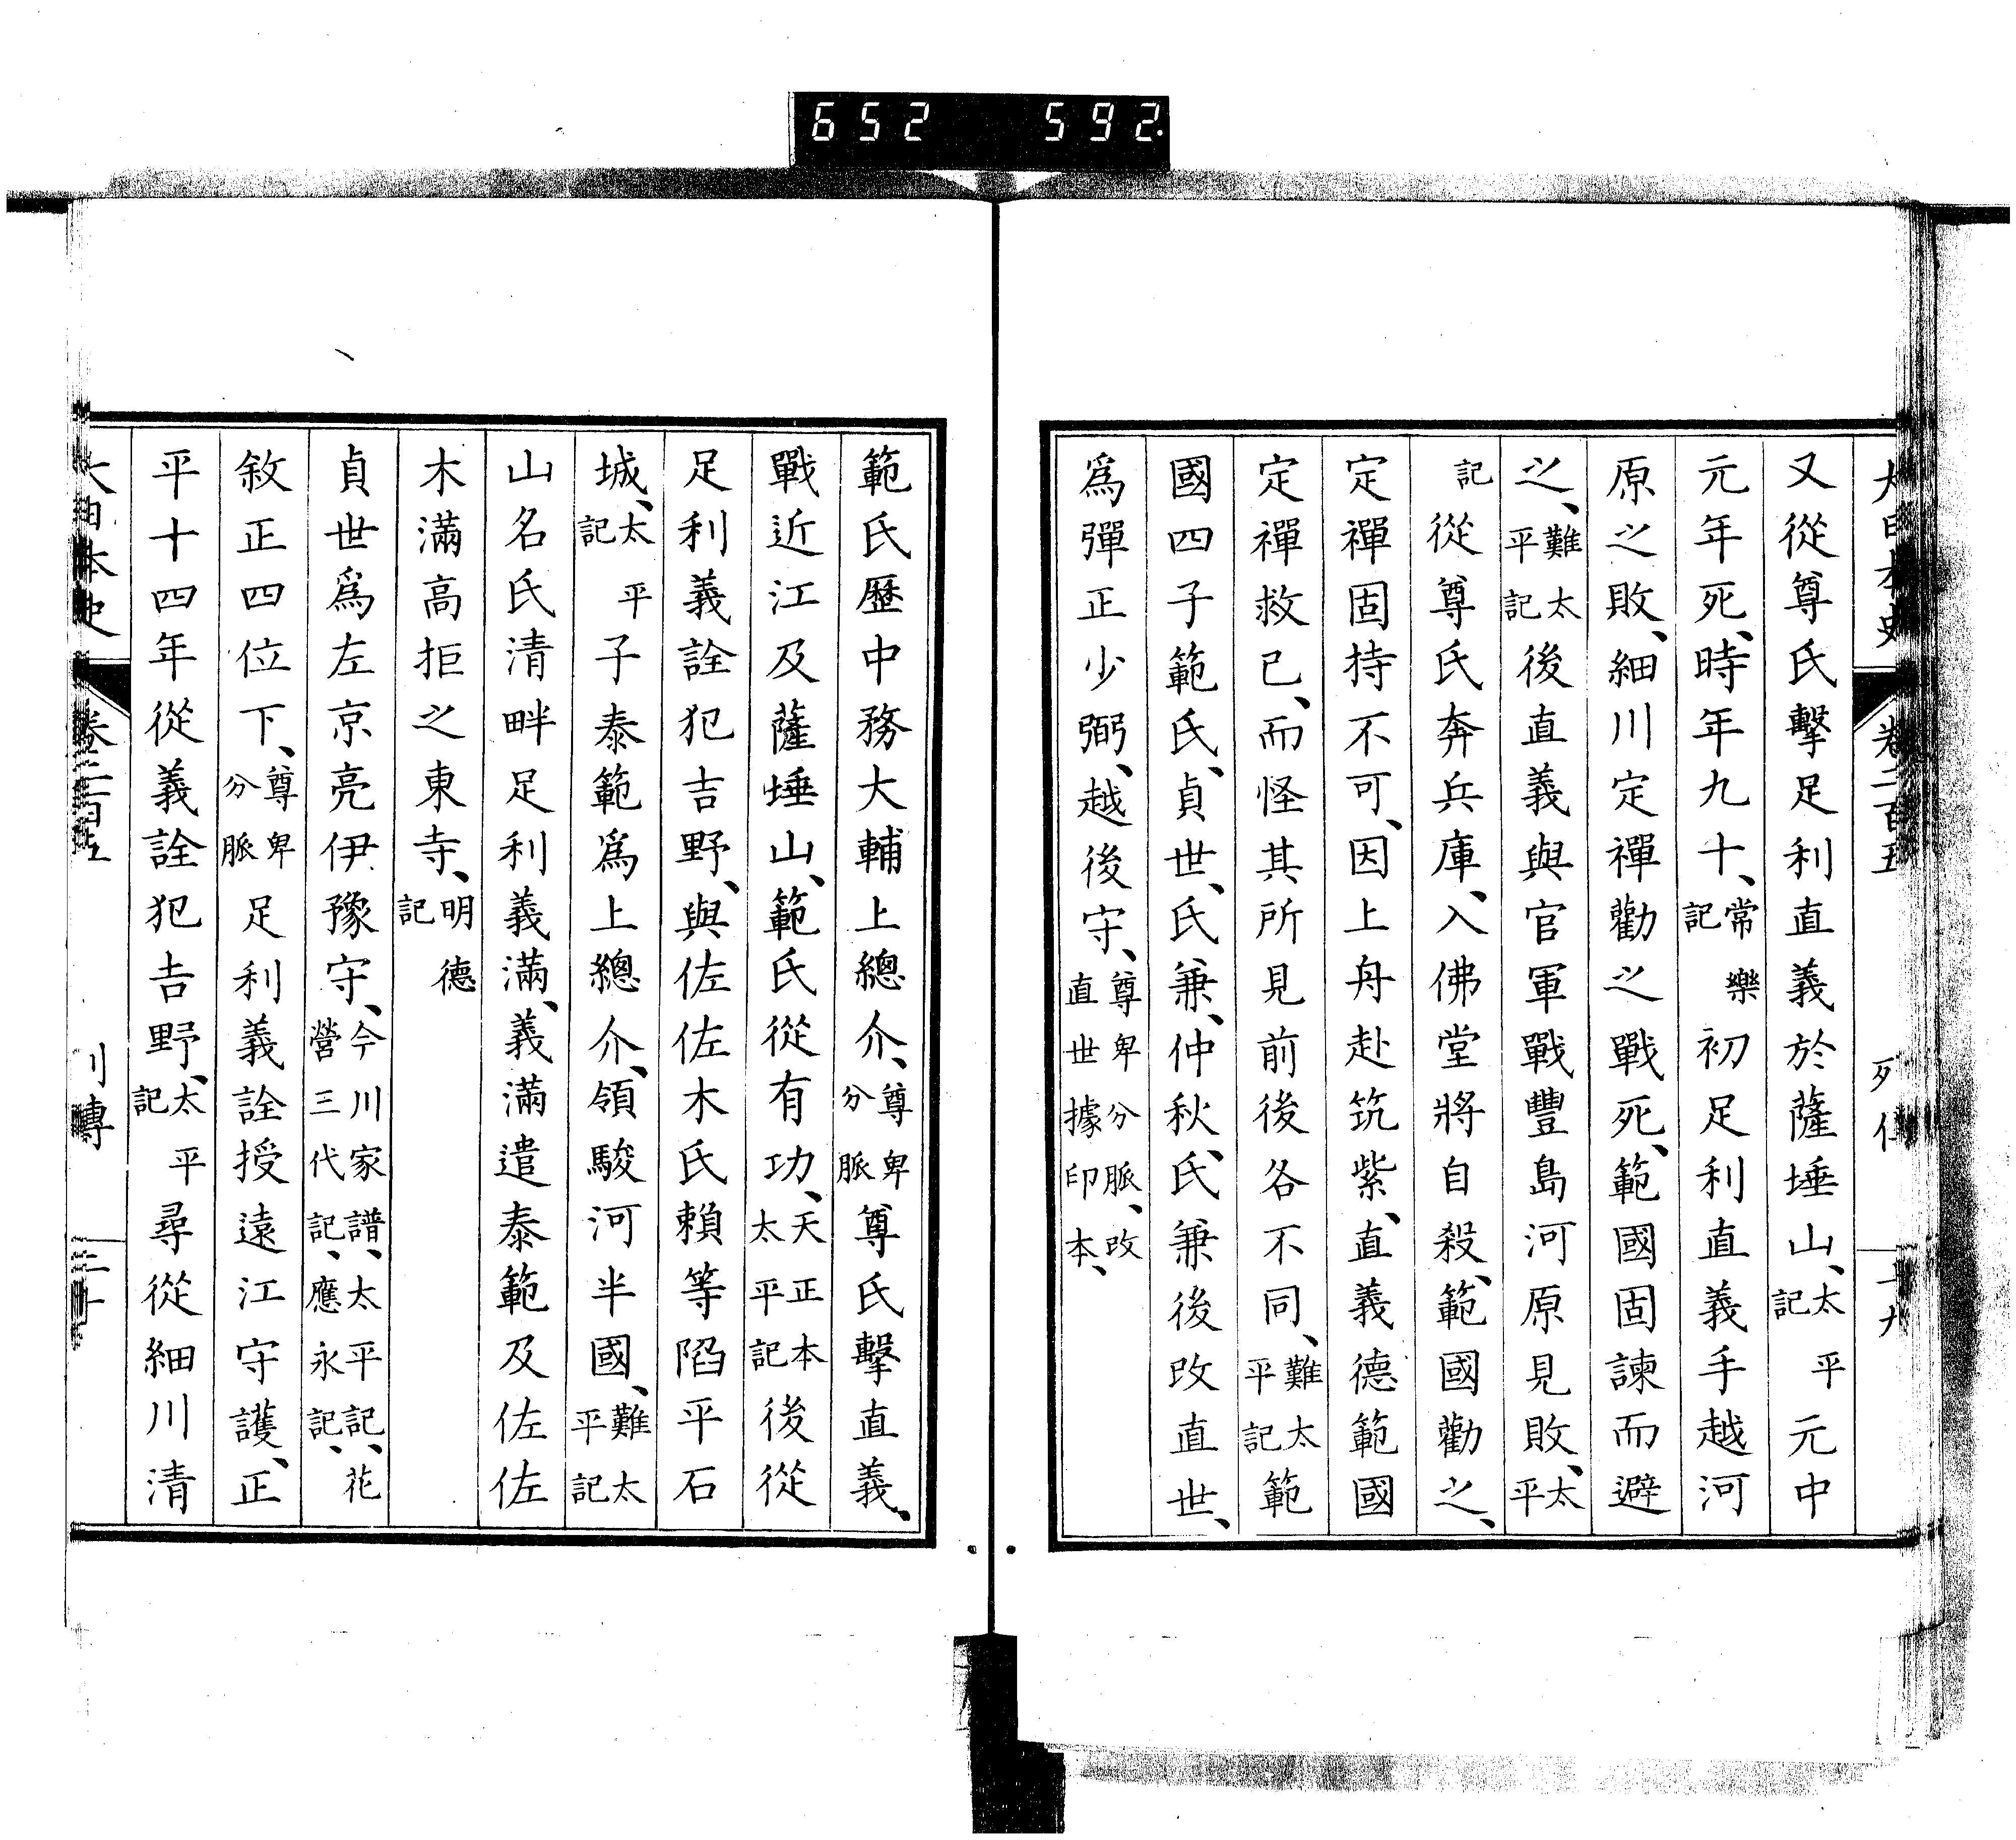 652 592
大日本史 卷二百五 列傳 二十九
又從尊氏擊足利直義於薩埵山、太平記元中
元年死、時年九十、常樂記初足利直義手越河
原之敗、細川定禪勸之戰死、範國固諫而避
之、難太平記後直義與官軍戰豐島河原見敗、太平
記從尊氏奔兵庫、入佛堂將自殺、範國勸之、
定禪固持不可、因上舟赴筑紫、直義德範國
定禪救己、而怪其所見前後各不同、難太平記範
國四子範氏、貞世、氏兼、仲秋、氏兼後改直世、
爲彈正少弼、越後守、尊卑分脈、改直世據印本、
範氏歷中務大輔上總介、尊卑分脈尊氏擊直義、
戰近江及薩埵山、範氏從有功、天正本太平記後從
足利義詮犯吉野、與佐佐木氏賴等陷平石
城、太平記子泰範爲上總介、領駿河半國、難太平記
山名氏清畔足利義滿、義滿遣泰範及佐佐
木滿高拒之東寺、明德記
貞世爲左京亮伊豫守、今川家譜、太平記、花營三代記、應永記、
敘正四位下、尊卑分脈足利義詮授遠江守護、正
平十四年從義詮犯吉野、太平記尋從細川清
大日本史 卷二百五 列傳 三十